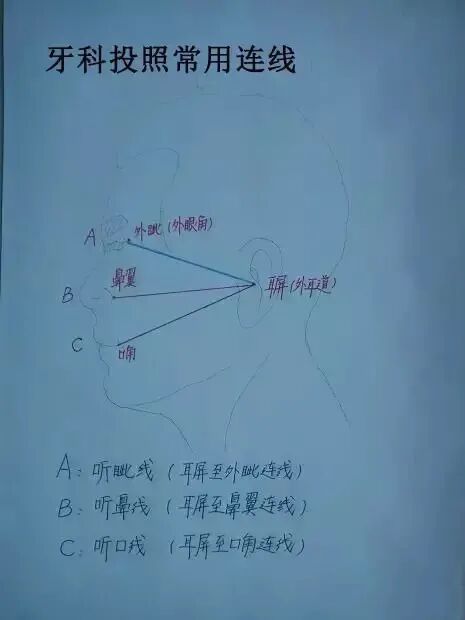 牙科投照常用连线
A 外眦（外眼角）
B 鼻翼 耳屏（外耳道）
C 口角
A：听眦线（耳屏至外眦连线）
B：听鼻线（耳屏至鼻翼连线）
C：听口线（耳屏至口角连线）